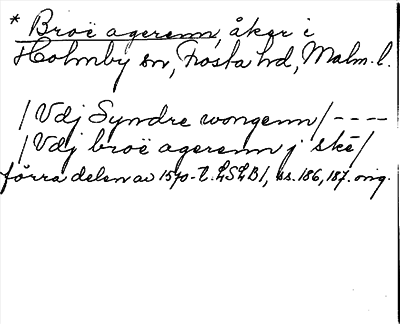 * Broë agerenn, åker i
Holmby sn, Frosta hd, Malm. l.
/Vdj Syndre wongenn/ ----
/Vdj broë agerenn j skë/
förra delen av 1570-t. LSLB1, ss. 186, 187. orig.